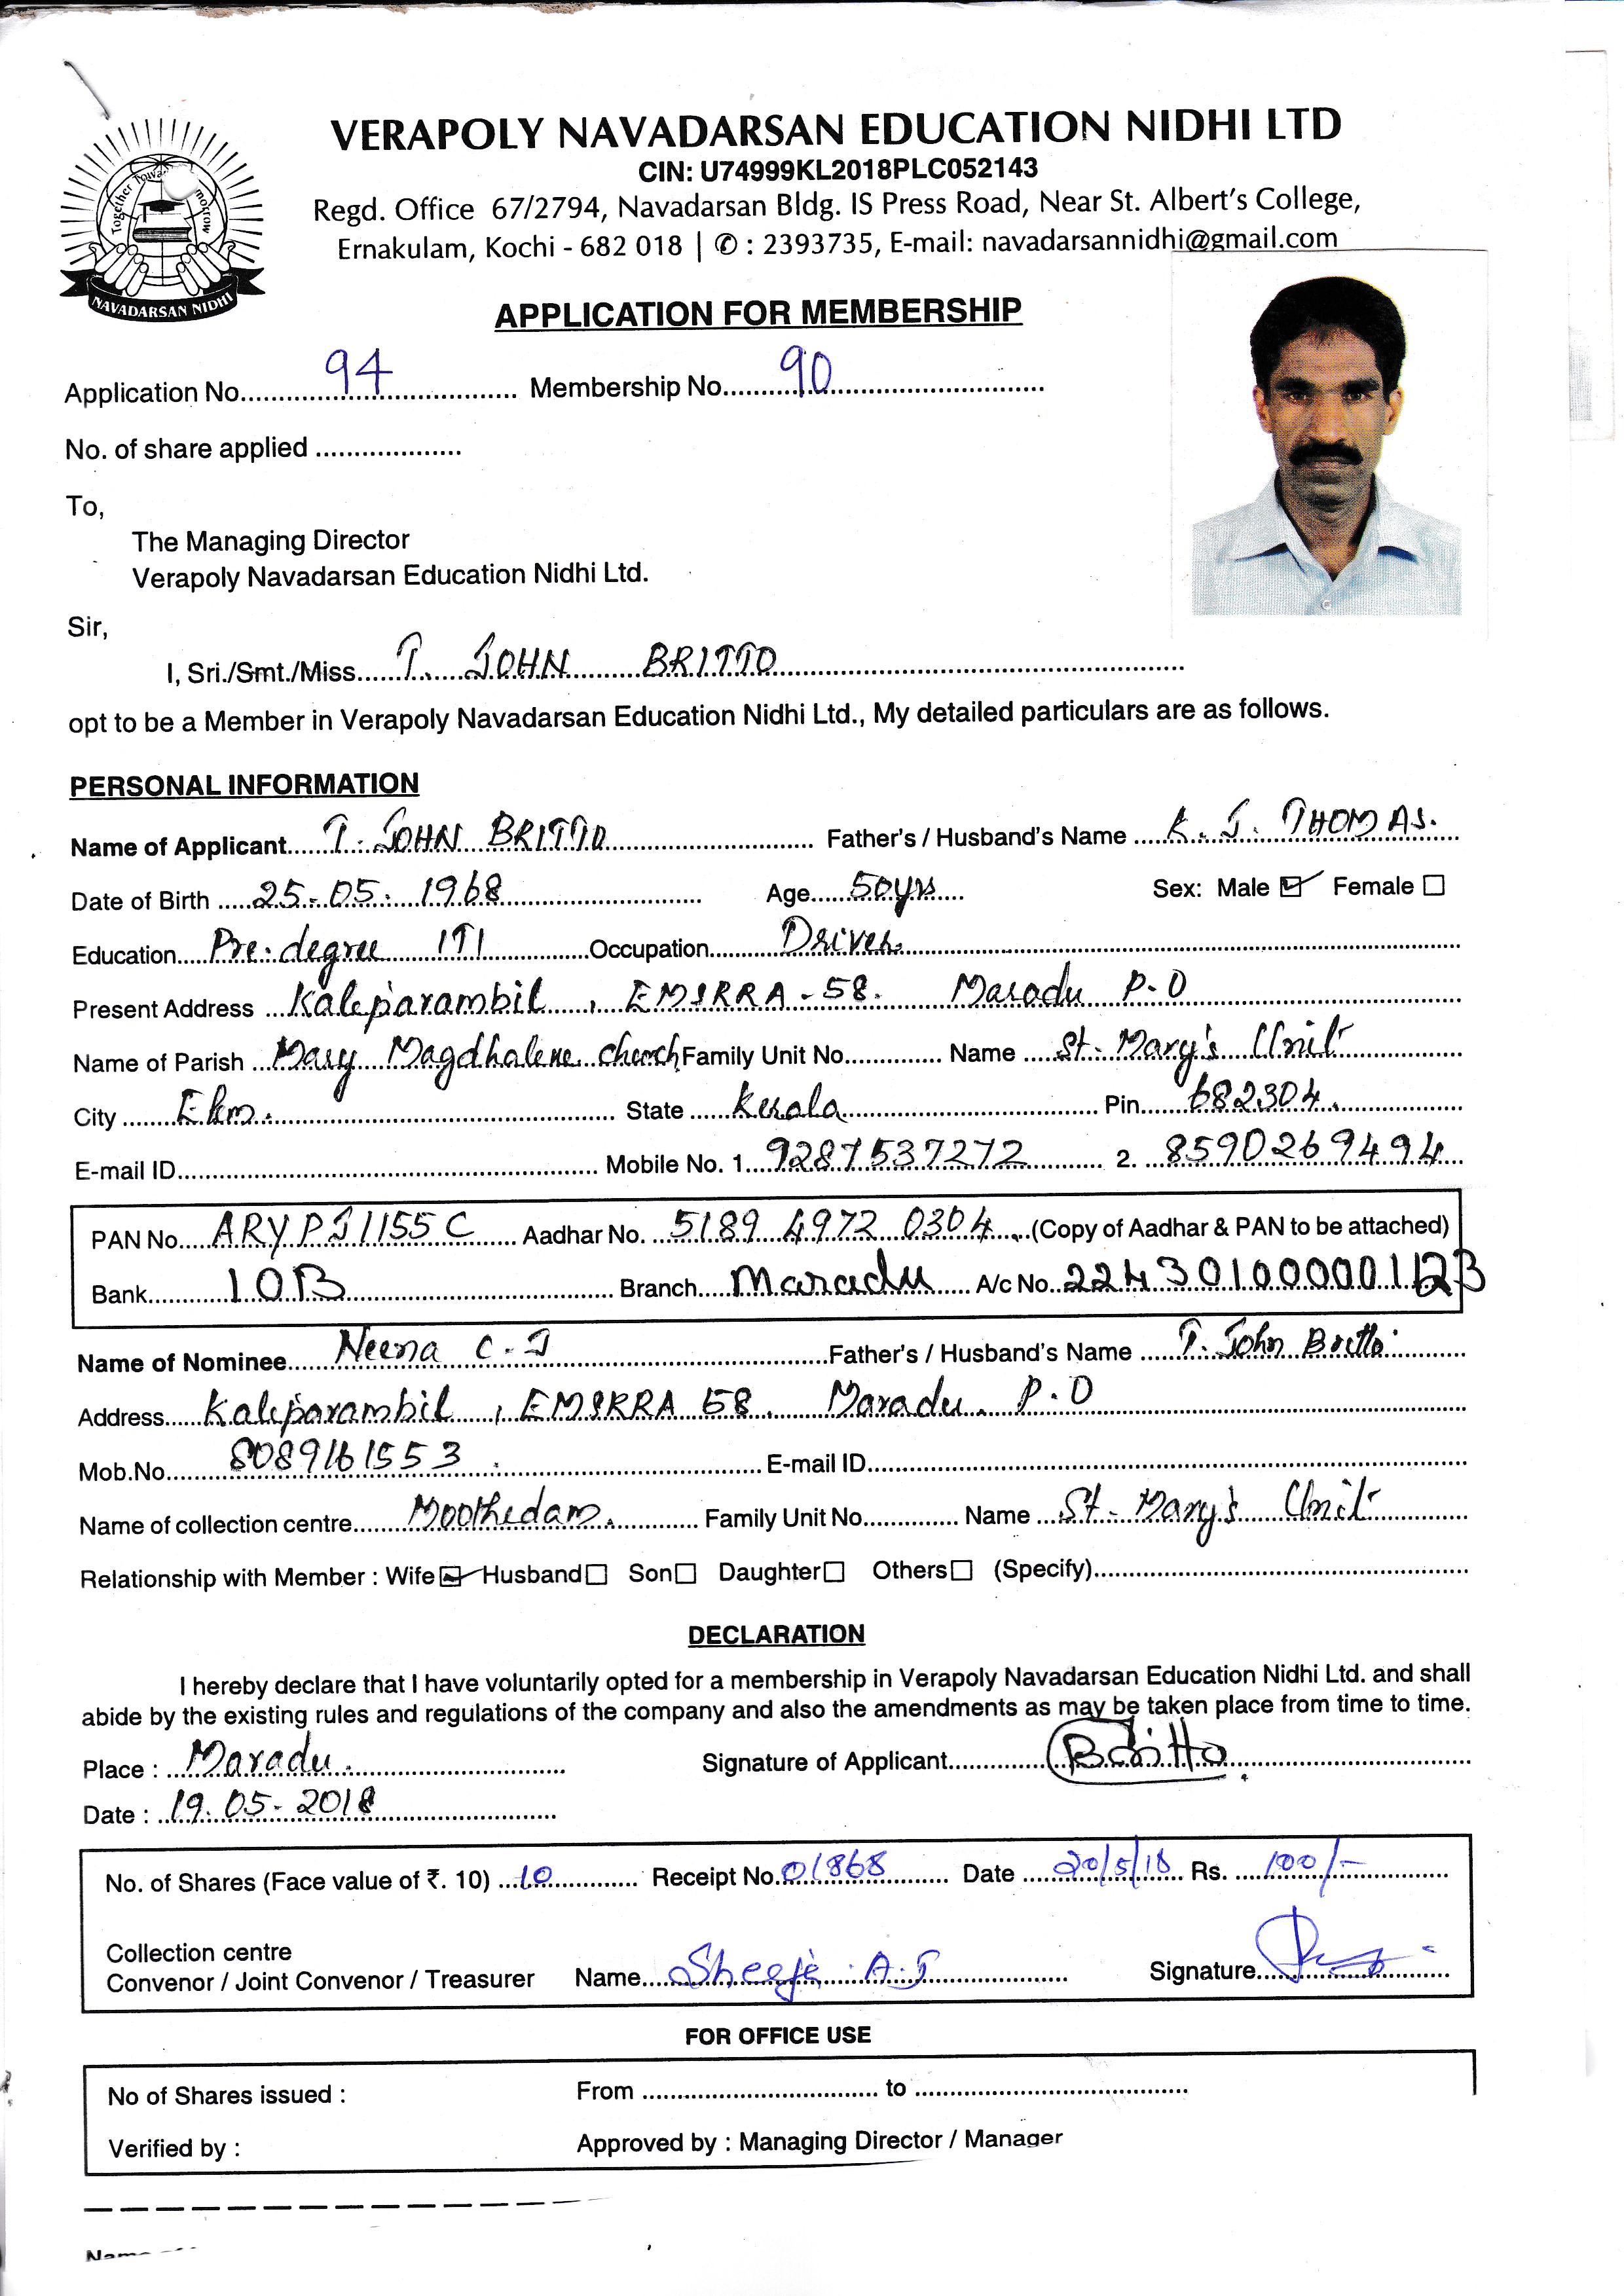 VERAPOLY NAVADARSAN EDUCATION NIDHI LTD
CIN: U74999KL2018PLC052143
Regd. Office 67/2794, Navadarsan Bldg. IS Press Road, Near St. Albert's College,
Ernakulam, Kochi - 682 018 | ✆ : 2393735, E-mail: navadarsannidhi@gmail.com
Together Towards morrow
NAVADARSAN NIDHI
APPLICATION FOR MEMBERSHIP
Application No. 94 Membership No. 90
No. of share applied
To,
The Managing Director
Verapoly Navadarsan Education Nidhi Ltd.
Sir,
I, Sri./Smt./Miss T. JOHN BRITTO
opt to be a Member in Verapoly Navadarsan Education Nidhi Ltd., My detailed particulars are as follows.
PERSONAL INFORMATION
Name of Applicant T. JOHN BRITTO Father's / Husband's Name K. J. THOMAS.
Date of Birth 25-05-1968 Age 50yrs Sex: Male Female
Education Pre-degree ITI Occupation Driver.
Present Address Kaleparambil, EMSRRA-58. Maradu P.O
Name of Parish Mary Magdhalene church Family Unit No. Name St. Mary's Unit
City Ekm. State Kerala Pin 682304.
E-mail ID Mobile No. 1. 9287537272 2. 8590269494
PAN No. ARYPJ1155C Aadhar No. 5189 4972 0304 (Copy of Aadhar & PAN to be attached)
Bank IOB Branch Maradu A/c No.
Name of Nominee Neena C.J Father's / Husband's Name T. John Britto
Address Kaleparambil, EMSRRA 58. Maradu. P.O
Mob.No. 8089161553 E-mail ID
Name of collection centre Moothedam. Family Unit No. Name St. Mary's Unit
Relationship with Member : Wife Husband Son Daughter Others (Specify)
DECLARATION
I hereby declare that I have voluntarily opted for a membership in Verapoly Navadarsan Education Nidhi Ltd. and shall
abide by the existing rules and regulations of the company and also the amendments as may be taken place from time to time.
Place : Maradu. Signature of Applicant Britto
Date : 19.05-2018
No. of Shares (Face value of ₹. 10) 10 Receipt No. 01868 Date 20/5/18 Rs. 100/-
Collection centre
Convenor / Joint Convenor / Treasurer Name Sheeje A.J Signature
FOR OFFICE USE
No of Shares issued : From to
Verified by : Approved by : Managing Director / Manager